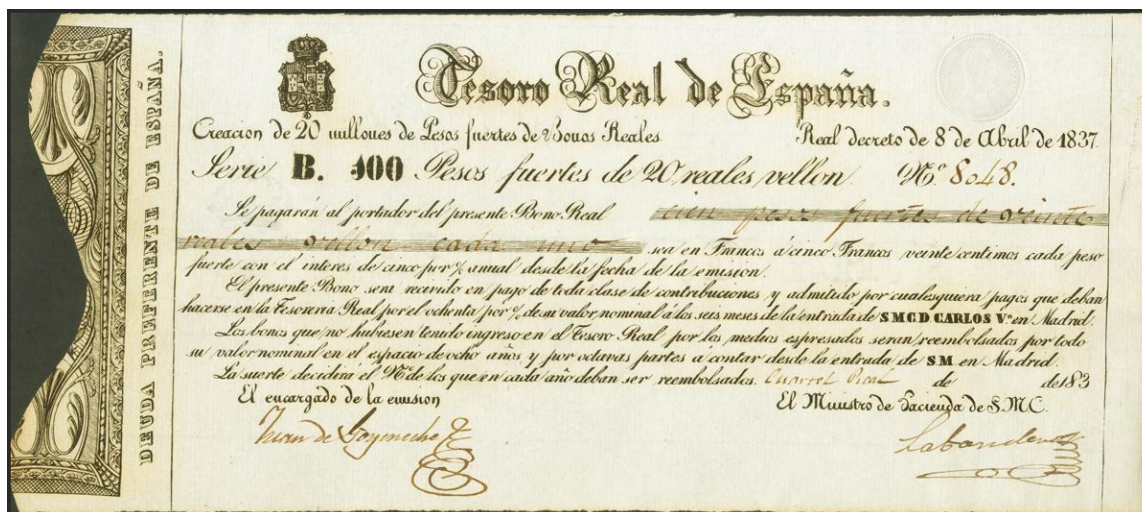 DEUDA PREFERENTE DE ESPAÑA.
Tesoro Real de España.
Creacion de 20 millones de Pesos fuertes de Bonos Reales. Real decreto de 8 de Abril de 1837
Serie B. 100 Pesos fuertes de 20 reales vellon. Nº 8048.
Se pagarán al portador del presente Bono Real cien pesos fuertes de veinte
reales vellon cada uno sea en Francos á cinco Francos veinte centimos cada peso
fuerte con el interes de cinco por % anual desde la fecha de la emision.
El presente Bono sera recivido en pago de toda clase de contribuciones y admitido por cualesquiera pagos que deban
hacerse en la Tesoreria Real por el ochenta por % de su valor nominal a los seis meses de la entrada de SMCD CARLOS Vº en Madrid.
Los bonos que no hubiesen tenido ingreso en el Tesoro Real por los medios espresados seran reembolsados por todo
su valor nominal en el espacio de ocho años y por octavas partes a contar desde la entrada de SM en Madrid.
La suerte decidirá el Nº de los que en cada año deban ser reembolsados. Cuartel Real de de 183
El encargado de la emision El Ministro de Hacienda de S.M.C.
Juan de Goyeneche Labandero